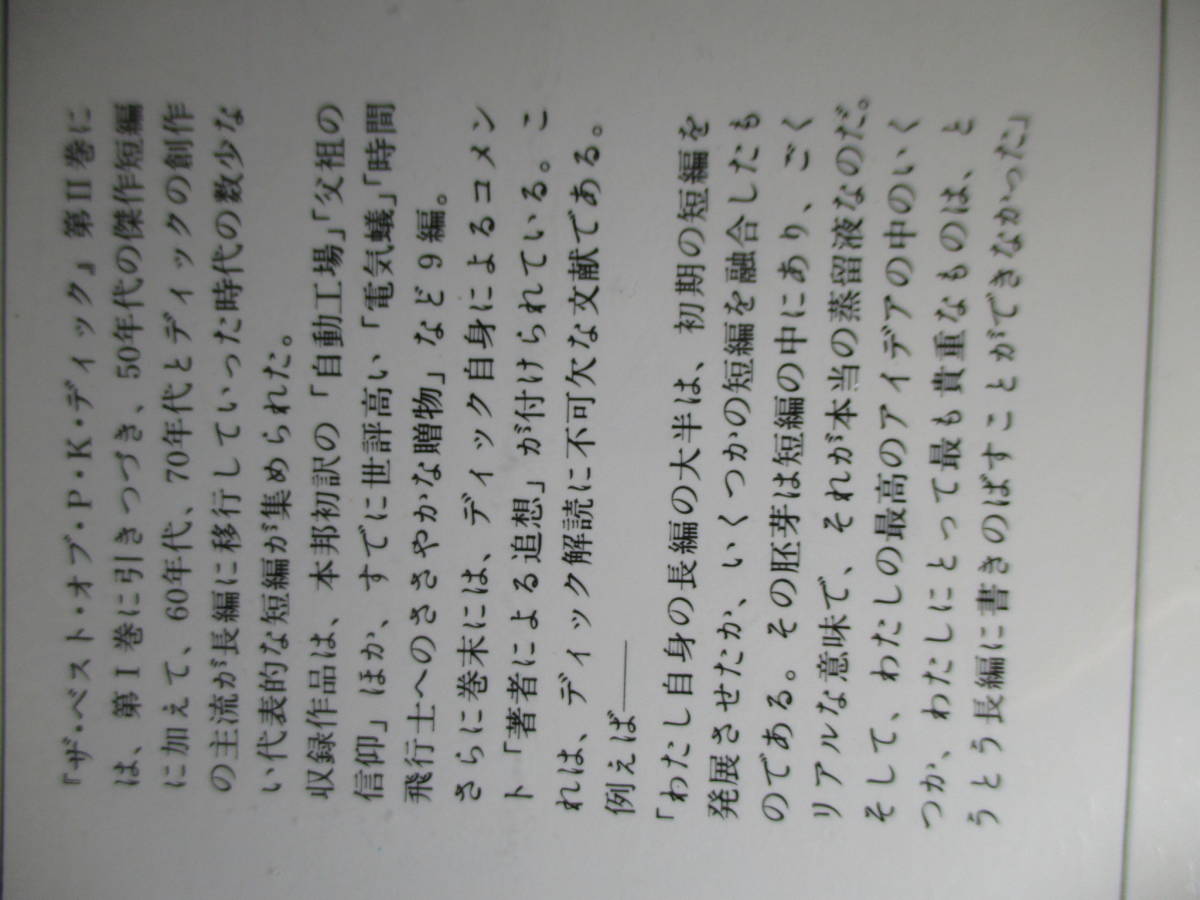 『ザ・ベスト・オブ・P・K・ディック』第II巻に
は、第I巻に引きつづき、50年代の傑作短編
に加えて、60年代、70年代とディックの創作
の主流が長編に移行していった時代の数少な
い代表的な短編が集められた。
収録作品は、本邦初訳の「自動工場」「父祖の
信仰」ほか、すでに世評高い「電気蟻」「時間
飛行士へのささやかな贈物」など9編。
さらに巻末には、ディック自身によるコメン
ト「著者による追想」が付けられている。こ
れは、ディック解読に不可欠な文献である。
例えば――
「わたし自身の長編の大半は、初期の短編を
発展させたか、いくつかの短編を融合したも
のである。その胚芽は短編の中にあり、ごく
リアルな意味で、それが本当の蒸留液なのだ。
そして、わたしの最高のアイデアの中のいく
つか、わたしにとって最も貴重なものは、と
うとう長編に書きのばすことができなかった」